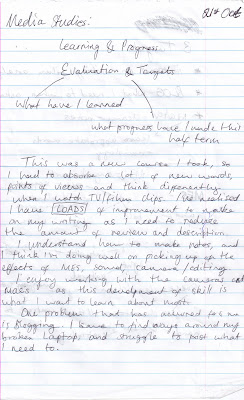 Media Studies:
21st Oct
Learning & Progress
Evaluation & Targets
What have I learned
what progress have I made this
half term
This was a new course I took, so
I had to absorb a lot of new words,
points of views and think differently
when I watch TV/film clips. I've realised
I have LOADS of improvement to make
on my writing as I need to reduce
the amount of review and description.
I understand how to make notes, and
think I'm doing well on picking up the
effects of MES, sound, camera/editing.
I enjoy working with the cameras and
macs as this development of skill is
what I want to learn about most.
One problem that has occurred for me
is Blogging. I have to find ways around my
broken laptop, and struggle to post what
I need to.